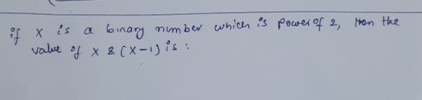 if x is a binary number which is power of 2, then the
value of x & (x-1) is :